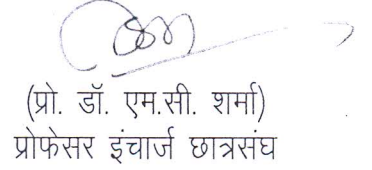 (प्रो. डॉ. एम.सी. शर्मा)
प्रोफेसर इंचार्ज छात्रसंघ